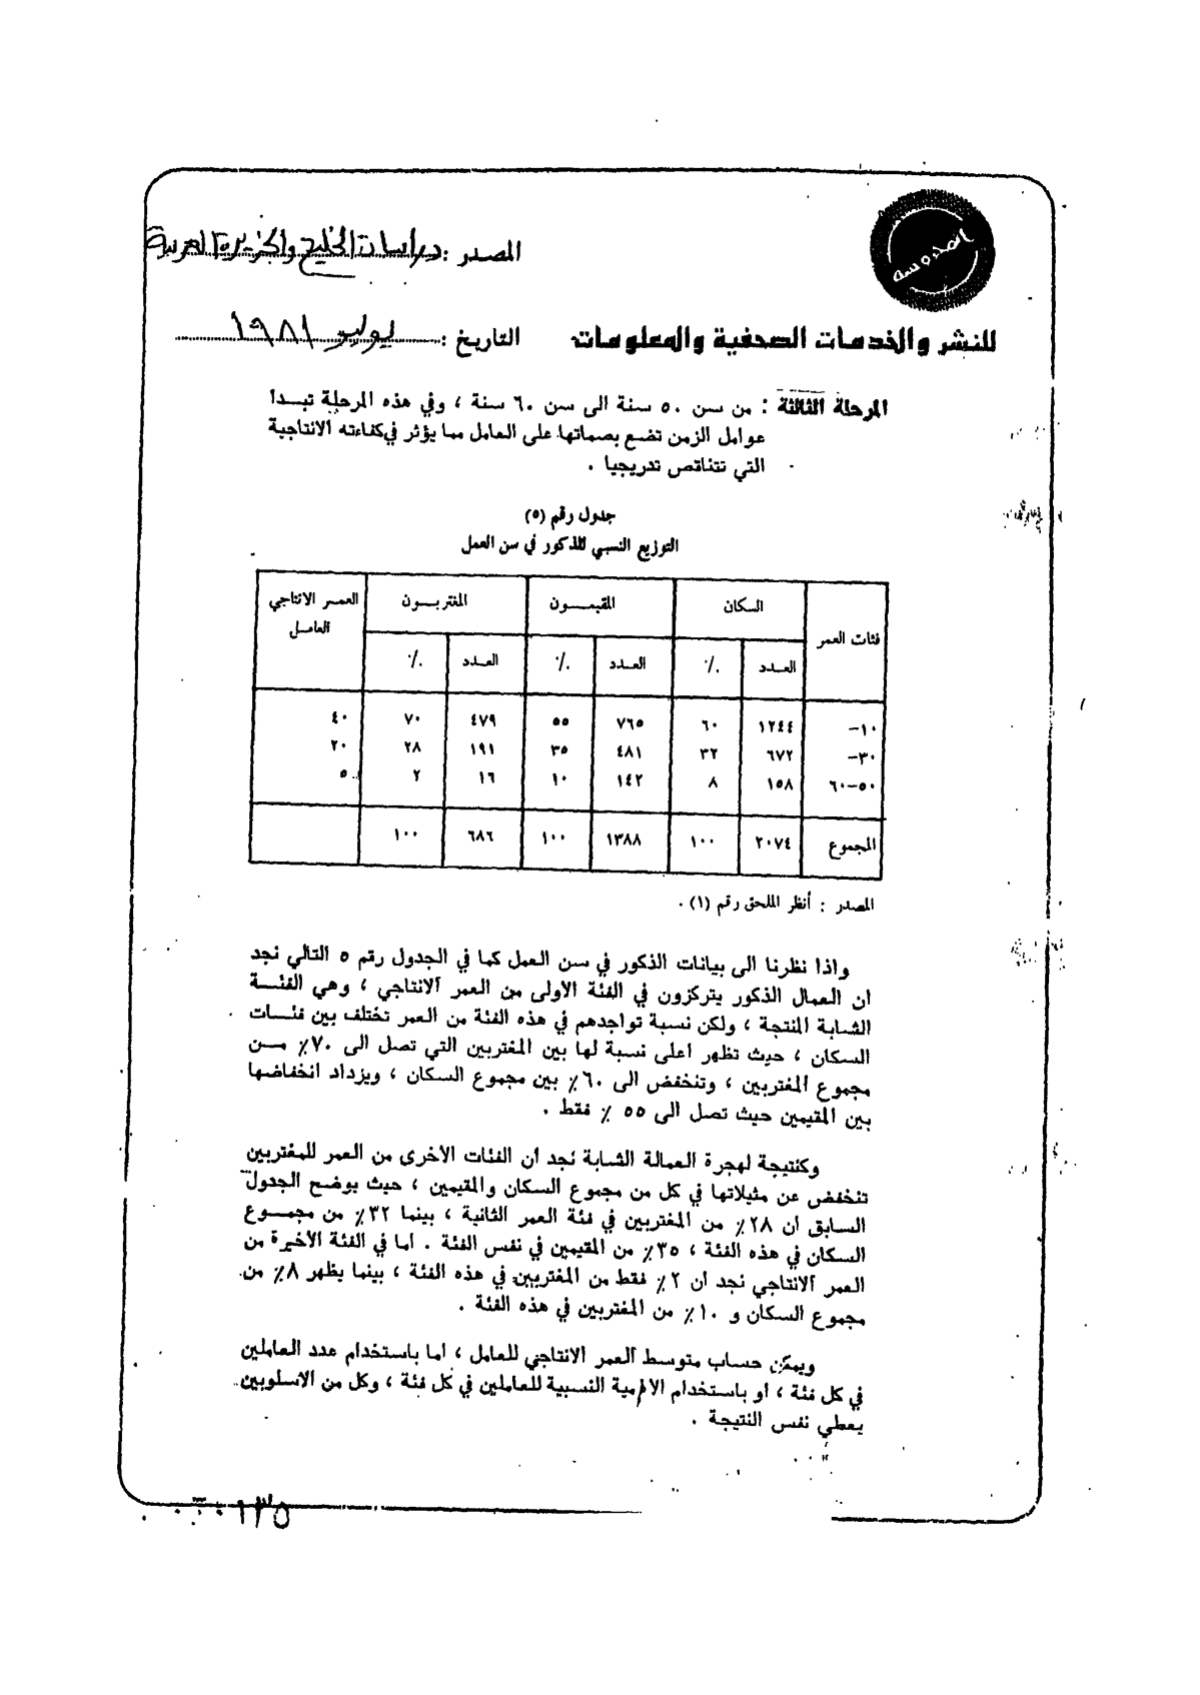 المدوسه
المصدر : دراسات الخليج والجزيرة العربية
للنشر والخدمات الصحفية والمعلومات
التاريخ : يوليو ١٩٨١
المرحلة الثالثة : من سن ٥٠ سنة الى سن ٦٠ سنة ، وفي هذه المرحلة تبـدا
عوامل الزمن تضع بصماتها على العامل مما يؤثر في كفاءته الانتاجية
التي تتناقص تدريجيا .
جدول رقم (٥)
التوزيع النسبي للذكور في سن العمل
فئات العمر السكان المقيمـون المغتربـون العمـر الانتاجي للعامـل
العـدد ٪ العـدد ٪ العـدد ٪
١٠– ١٢٤٤ ٦٠ ٧٦٥ ٥٥ ٤٧٩ ٧٠ ٤٠
٣٠– ٦٧٢ ٣٢ ٤٨١ ٣٥ ١٩١ ٢٨ ٢٠
٥٠–٦٠ ١٥٨ ٨ ١٤٢ ١٠ ١٦ ٢ ٥
المجموع ٢٠٧٤ ١٠٠ ١٣٨٨ ١٠٠ ٦٨٦ ١٠٠
المصدر : أنظر الملحق رقم (١) .
واذا نظرنا الى بيانات الذكور في سن العمل كما في الجدول رقم ٥ التالي نجد
ان العمال الذكور يتركزون في الفئة الاولى من العمر الانتاجي ، وهي الفئـة
الشابة المنتجة ، ولكن نسبة تواجدهم في هذه الفئة من العمر تختلف بين فئـات
السكان ، حيث تظهر اعلى نسبة لها بين المغتربين التي تصل الى ٧٠٪ مـن
مجموع المغتربين ، وتنخفض الى ٦٠٪ بين مجموع السكان ، ويزداد انخفاضها
بين المقيمين حيث تصل الى ٥٥ ٪ فقط .
وكنتيجة لهجرة العمالة الشابة نجد ان الفئات الاخرى من العمر للمغتربين
تنخفض عن مثيلاتها في كل من مجموع السكان والمقيمين ، حيث يوضح الجدول
السابق ان ٢٨٪ من المغتربين في فئة العمر الثانية ، بينما ٣٢٪ من مجمـوع
السكان في هذه الفئة ، ٣٥٪ من المقيمين في نفس الفئة . اما في الفئة الأخيرة من
العمر الانتاجي نجد ان ٢٪ فقط من المغتربين في هذه الفئة ، بينما يظهر ٨٪ من
مجموع السكان و ١٠٪ من المغتربين في هذه الفئة .
ويمكن حساب متوسط العمر الانتاجي للعامل ، اما باستخدام عدد العاملين
في كل فئة ، او باستخدام الاهمية النسبية للعاملين في كل فئة ، وكل من الاسلوبين
يعطي نفس النتيجة .